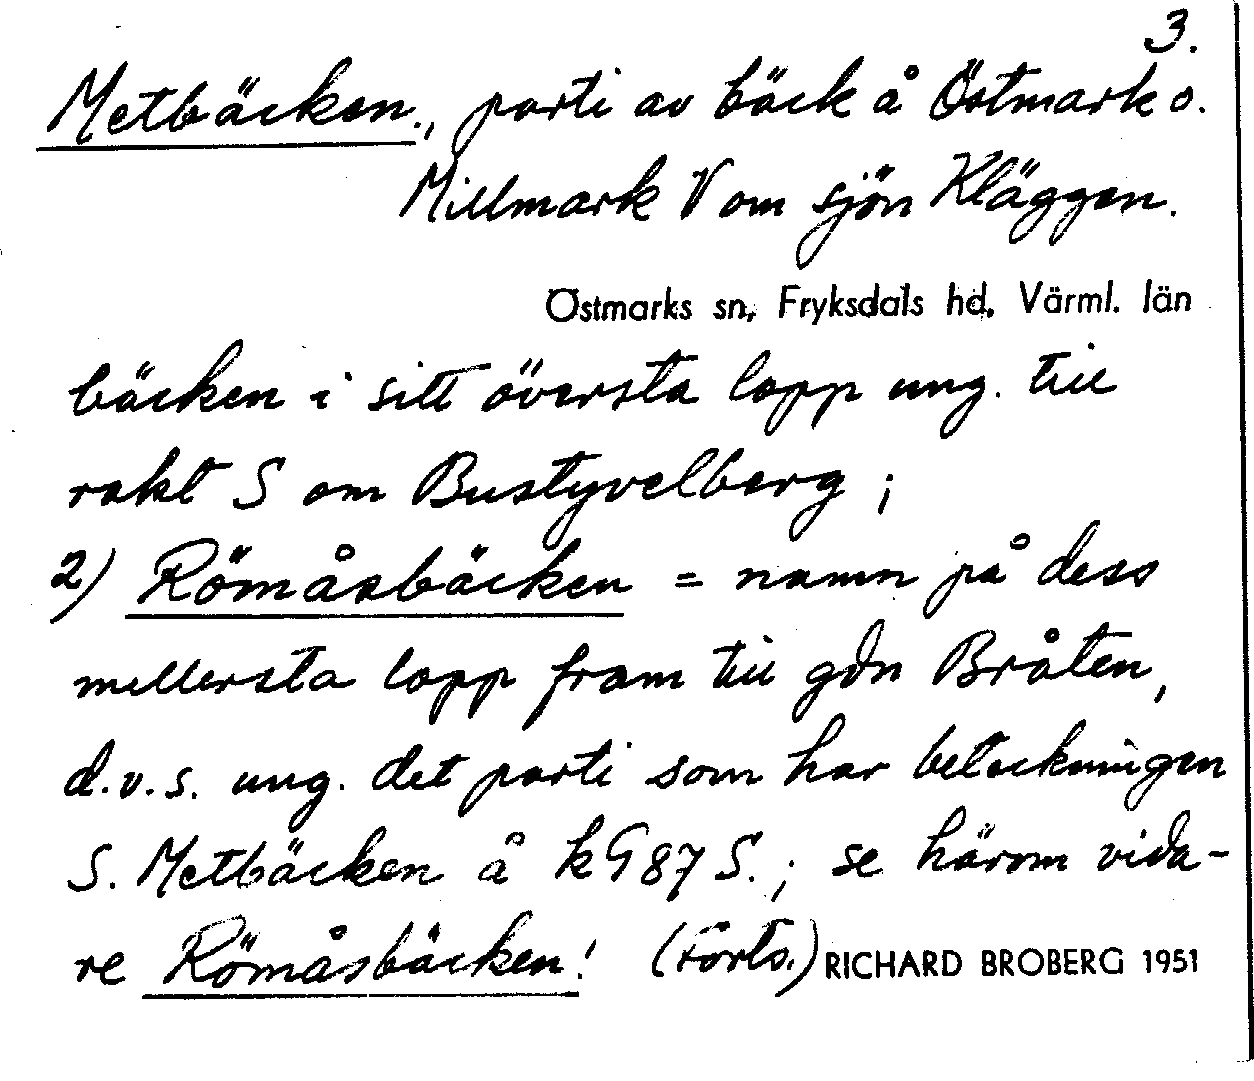 3.
Metbäcken., parti av bäck å Östmark o.
Millmark V om sjön Kläggen.
Östmarks sn, Fryksdals hd, Värml. län
bäcken i sitt översta lopp ung. till
rakt S om Bustyvelberg;
2) Römåsbäcken = namn på dess
mellersta lopp fram till gdn Bråten,
d.v.s. ung. det parti som har beteckningen
S. Metbäcken å kG87 S.; se härom vida-
re Römåsbäcken! (Forts.) RICHARD BROBERG 1951